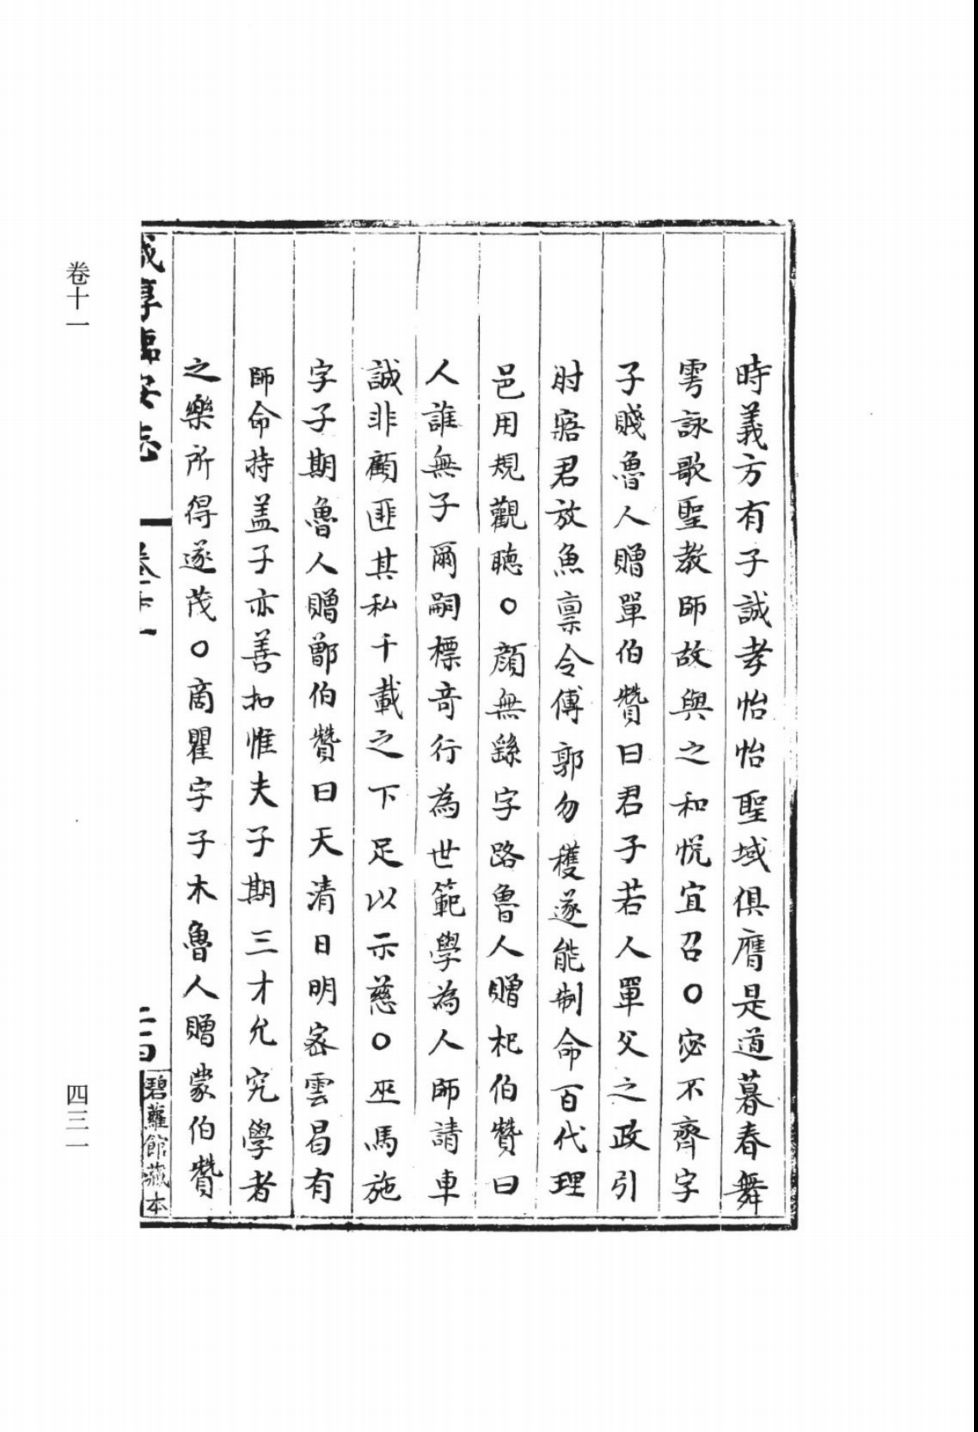 時義方有子誠孝怡怡聖域俱膺是道暮春舞
雩詠歌聖教師故與之和悅宜召○宓不齊字
子賤魯人贈單伯贊曰君子若人單父之政引
肘寤君放魚禀令傅郭勿穫遂能制命百代理
邑用規觀聽○顏無繇字路魯人贈杞伯贊曰
人誰無子爾嗣標竒行為世範學為人師請車
誠非顧匪其私千載之下足以示慈○巫馬施
字子期魯人贈鄫伯贊曰天清日明宻雲曷有
師命持盖子亦善扣惟夫子期三才允究學者
之樂所得遂茂○商瞿字子木魯人贈蒙伯贊
咸淳臨安志
卷十一
碧蘿館藏本
卷十一
四三一